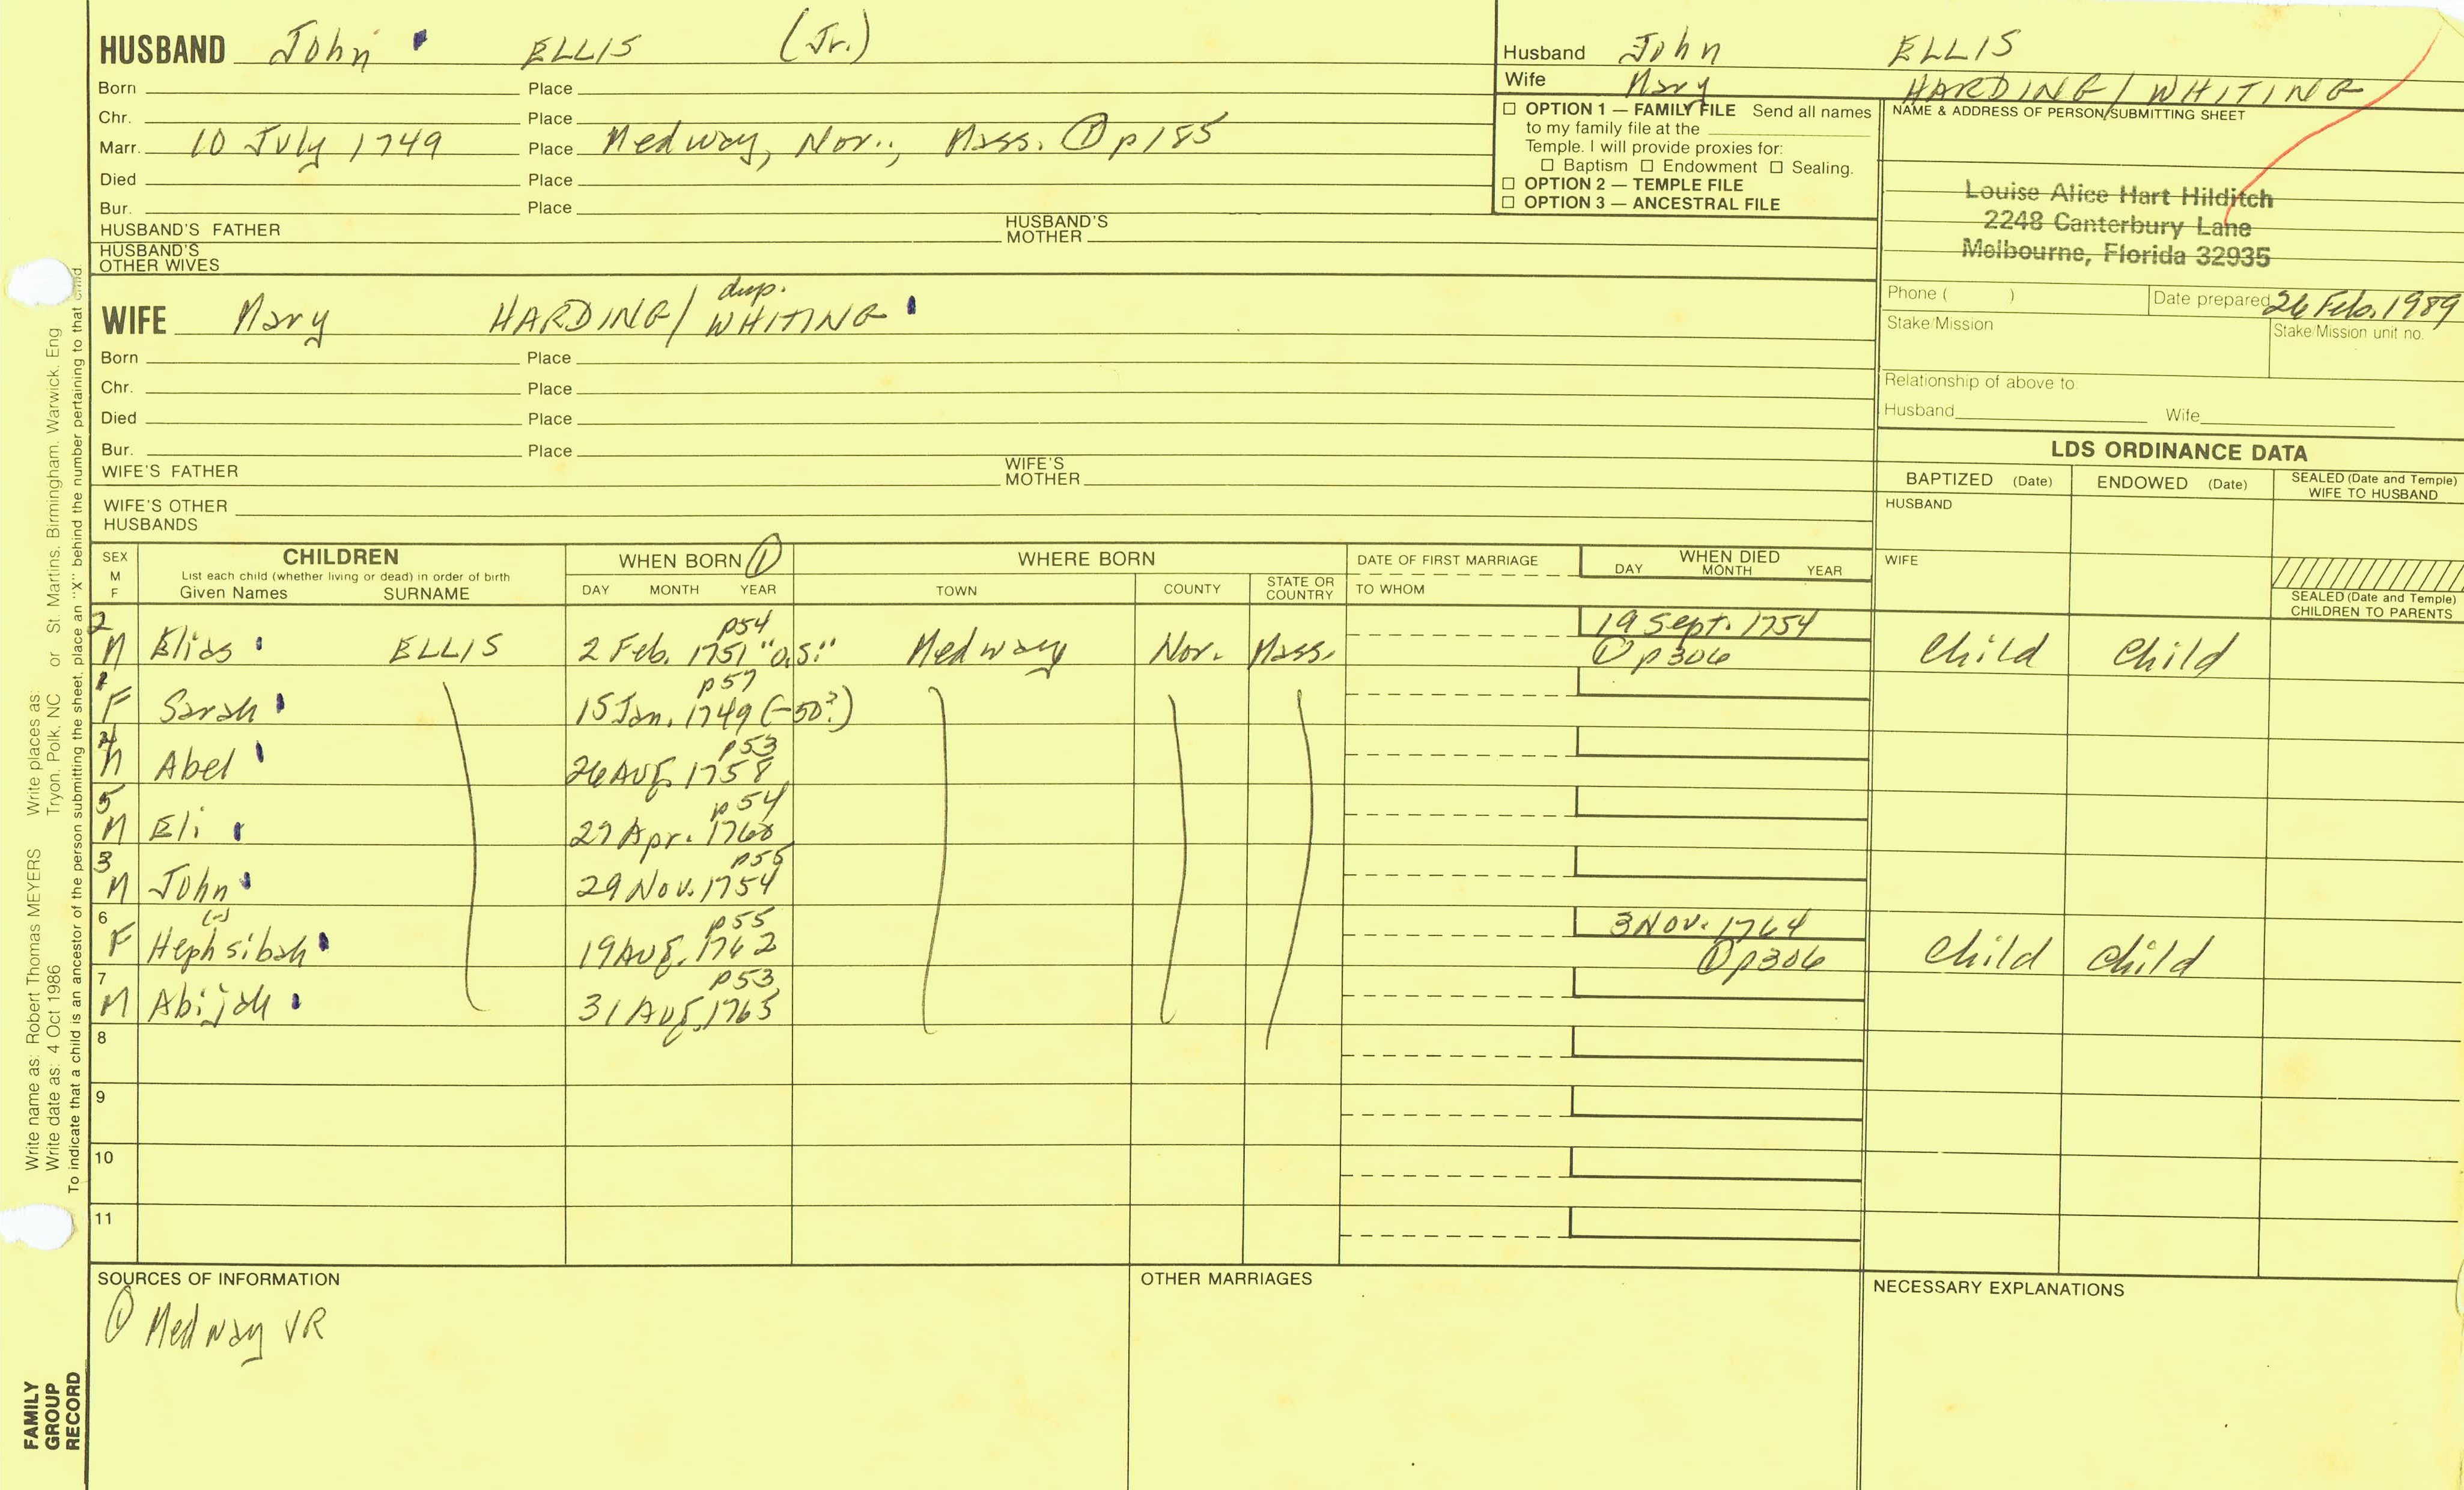 HUSBAND John ELLIS (Jr.)
Born Place
Chr. Place
Marr. 10 July 1749 Place Medway, Nor., Mass. ① p185
Died Place
Bur. Place
HUSBAND'S FATHER HUSBAND'S MOTHER
HUSBAND'S OTHER WIVES
Husband John ELLIS
Wife Mary HARDING/WHITING
☐ OPTION 1 — FAMILY FILE Send all names
to my family file at the
Temple. I will provide proxies for:
☐ Baptism ☐ Endowment ☐ Sealing.
☐ OPTION 2 — TEMPLE FILE
☐ OPTION 3 — ANCESTRAL FILE
NAME & ADDRESS OF PERSON SUBMITTING SHEET
Louise Alice Hart Hilditch
2248 Canterbury Lane
Melbourne, Florida 32935
Phone ( ) Date prepared 26 Feb. 1989
Stake/Mission Stake/Mission unit no.
Relationship of above to:
Husband Wife
dup.
WIFE Mary HARDING/WHITING
Born Place
Chr. Place
Died Place
Bur. Place
WIFE'S FATHER WIFE'S MOTHER
WIFE'S OTHER HUSBANDS
LDS ORDINANCE DATA
BAPTIZED (Date) ENDOWED (Date) SEALED (Date and Temple) WIFE TO HUSBAND
HUSBAND
WIFE
SEALED (Date and Temple) CHILDREN TO PARENTS
SEX M F
CHILDREN
List each child (whether living or dead) in order of birth
Given Names SURNAME
WHEN BORN ①
DAY MONTH YEAR
WHERE BORN
TOWN COUNTY STATE OR COUNTRY
DATE OF FIRST MARRIAGE
TO WHOM
WHEN DIED
DAY MONTH YEAR
2 p54 19 Sept. 1754
M Elias ELLIS 2 Feb. 1751 "O.S." Medway Nor. Mass. ① p306 Child Child
1 p57
F Sarah 15 Jan. 1749 (-50?)
4 p53
M Abel 26 Aug. 1758
5 p54
M Eli 27 Apr. 1760
3 p55
M John 29 Nov. 1754
6 (-) p55 3 Nov. 1764
F Hephsibah 19 Aug. 1762 ① p306 Child Child
7 p53
M Abijah 31 Aug. 1765
8
9
10
11
SOURCES OF INFORMATION
① Medway VR
OTHER MARRIAGES
NECESSARY EXPLANATIONS
Write name as: Robert Thomas MEYERS Write places as: Tryon, Polk, NC or St. Martins, Birmingham, Warwick, Eng
Write date as: 4 Oct 1986
To indicate that a child is an ancestor of the person submitting the sheet, place an "X" behind the number pertaining to that child.
FAMILY
GROUP
RECORD